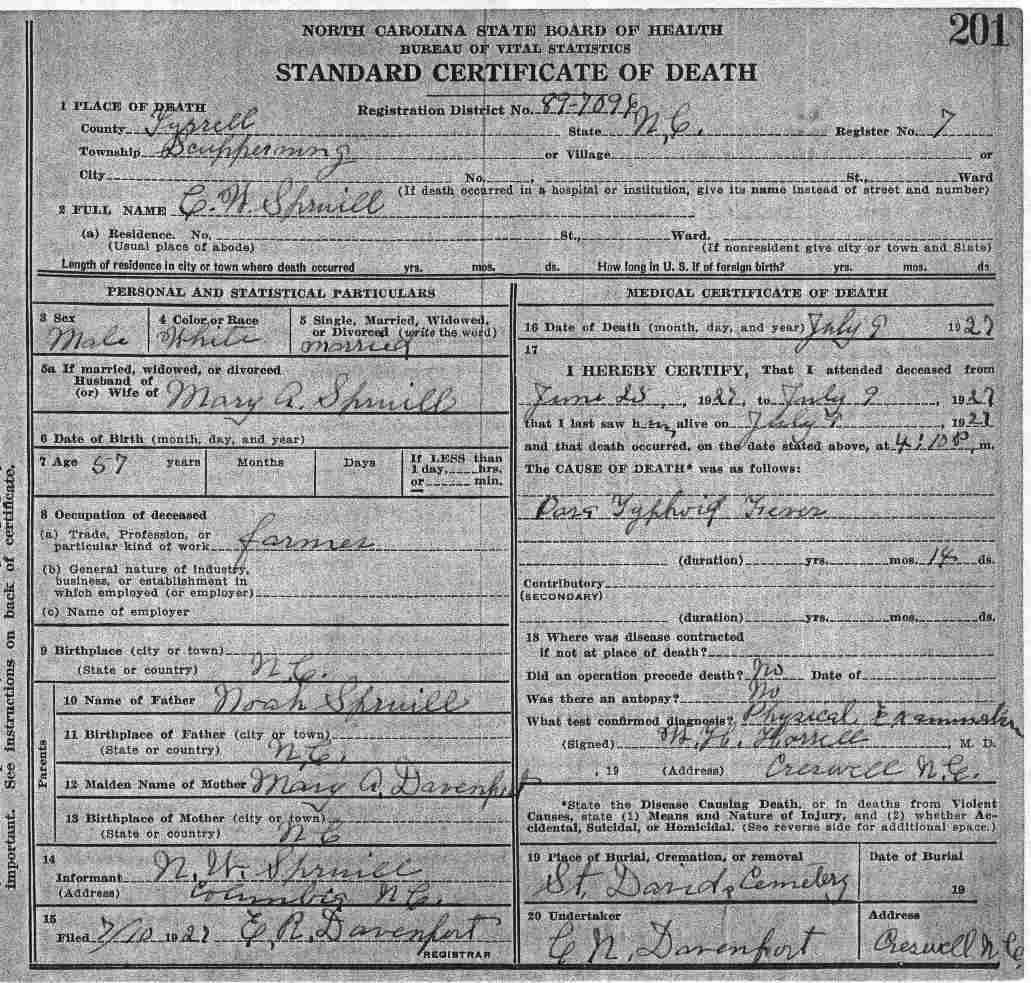 201
NORTH CAROLINA STATE BOARD OF HEALTH
BUREAU OF VITAL STATISTICS
STANDARD CERTIFICATE OF DEATH
1 PLACE OF DEATH Registration District No. 89-7091
County Tyrrell State N.C. Register No. 7
Township Scupperning or Village or
City No. , St., Ward
(If death occurred in a hospital or institution, give its name instead of street and number)
2 FULL NAME C. W. Spruill
(a) Residence. No. St., Ward.
(Usual place of abode) (If nonresident give city or town and State)
Length of residence in city or town where death occurred yrs. mos. ds. How long in U. S. if of foreign birth? yrs. mos. ds.
PERSONAL AND STATISTICAL PARTICULARS
3 Sex 4 Color or Race 5 Single, Married, Widowed,
or Divorced (write the word)
Male White married
5a If married, widowed, or divorced
Husband of
(or) Wife of Mary A. Spruill
6 Date of Birth (month, day, and year)
7 Age 57 years Months Days If LESS than
1 day, hrs.
or min.
8 Occupation of deceased
(a) Trade, Profession, or
particular kind of work farmer
(b) General nature of Industry,
business, or establishment in
which employed (or employer)
(c) Name of employer
9 Birthplace (city or town)
(State or country) N.C.
Parents
10 Name of Father Noah Spruill
11 Birthplace of Father (city or town)
(State or country) N.C.
12 Maiden Name of Mother Mary A. Davenport
13 Birthplace of Mother (city or town)
(State or country) N C
14
Informant N. W. Spruill
(Address) Columbia N.C.
15
Filed 7/10 1927 E. R. Davenport
REGISTRAR
MEDICAL CERTIFICATE OF DEATH
16 Date of Death (month, day, and year) July 9 1927
17
I HEREBY CERTIFY, That I attended deceased from
June 25, 1927, to July 9, 1927
that I last saw him alive on July 9, 1927
and that death occurred, on the date stated above, at 4:10 P, m.
The CAUSE OF DEATH* was as follows:
Para Typhoid Fever
(duration) yrs. mos. 14 ds.
Contributory
(SECONDARY)
(duration) yrs. mos. ds.
18 Where was disease contracted
if not at place of death?
Did an operation precede death? No Date of
Was there an autopsy? No
What test confirmed diagnosis? Physical Examination
(Signed) W. H. Horrell, M. D.
, 19 (Address) Creswell N.C.
*State the Disease Causing Death, or in deaths from Violent
Causes, state (1) Means and Nature of Injury, and (2) whether Ac-
cidental, Suicidal, or Homicidal. (See reverse side for additional space.)
19 Place of Burial, Cremation, or removal Date of Burial
St. Davids Cemetery 19
20 Undertaker Address
C N. Davenport Creswell N C.
important. See instructions on back of certificate.